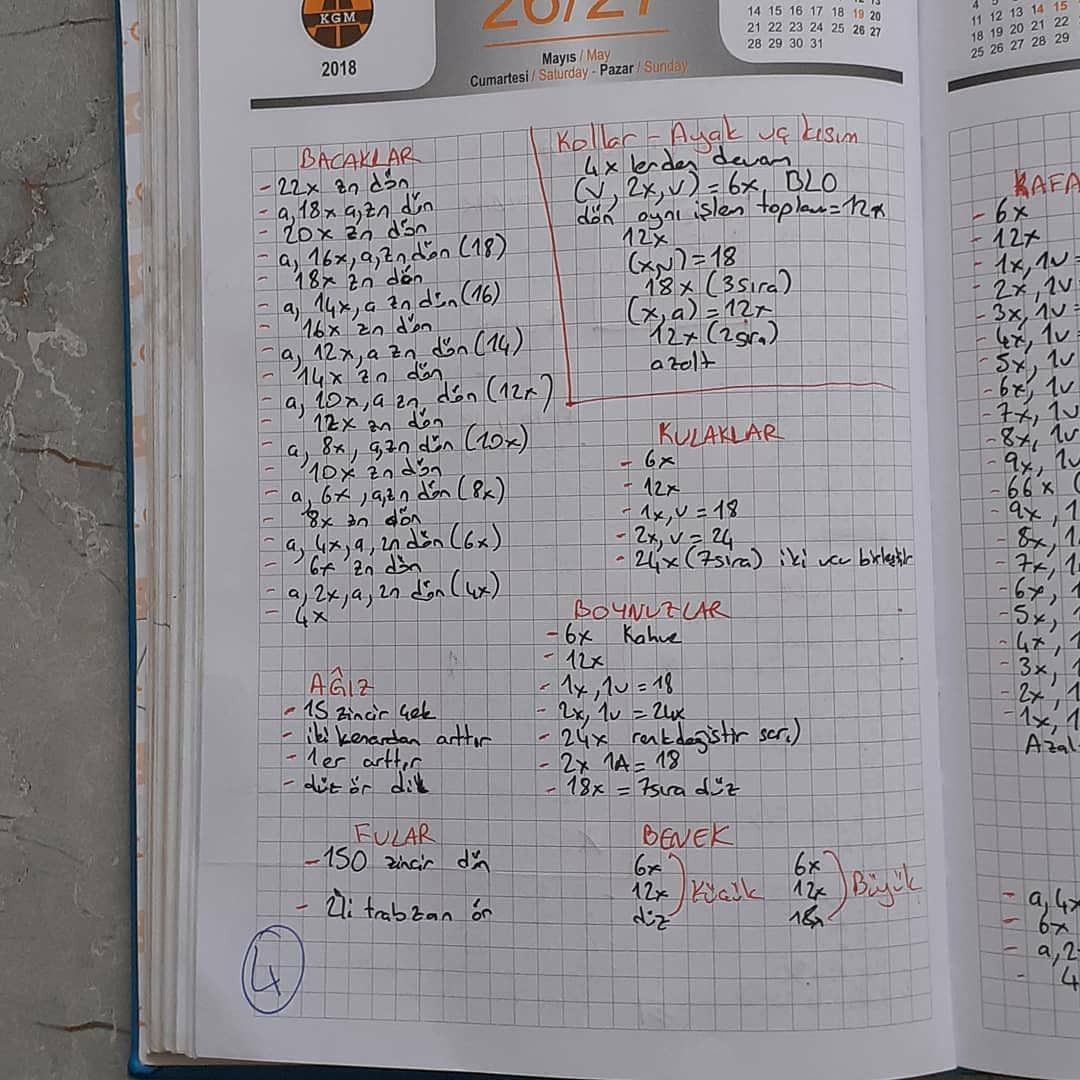 KGM
2018
26/27
Mayıs / May
Cumartesi / Saturday - Pazar / Sunday
14 15 16 17 18 19 20
21 22 23 24 25 26 27
28 29 30 31
11 12 13 14 15
18 19 20 21 22
25 26 27 28 29
BACAKLAR
- 22x zn dön
- a, 18x a, zn dön
- 20x zn dön
- a, 16x, a, zn dön (18)
- 18x zn dön
- a, 14x, a zn dön (16)
- 16x zn dön
- a, 12x, a zn dön (14)
- 14x zn dön
- a, 10x, a zn dön (12x)
- 12x zn dön
- a, 8x, a, zn dön (10x)
- 10x zn dön
- a, 6x, a, zn dön (8x)
- 8x zn dön
- a, 4x, a, zn dön (6x)
- 6x zn dön
- a, 2x, a, zn dön (4x)
- 4x
Kollar - Ayak uç kısım
4x lerden devam
(v, 2x, v) = 6x, BLO
dön aynı işlen toplam = 12x
12x
(x,v) = 18
18x (3sıra)
(x, a) = 12x
12x (2sır.)
azalt
KULAKLAR
- 6x
- 12x
- 1x, v = 18
- 2x, v = 24
- 24x (7sıra) iki ucu birleştir
BOYNUZLAR
- 6x Kahve
- 12x
- 1x, 1v = 18
- 2x, 1v = 24x
- 24x renk değiştir sarı)
- 2x 1A = 18
- 18x = 7sıra düz
AĞIZ
- 15 zincir çek
- iki kenardan arttır
- 1er arttır
- düz ör dik
FULAR
- 150 zincir dön
- 2li trabzan ör
BENEK
6x
12x
düz
Küçük
6x
12x
18x
Büyük
4
KAFA
- 6x
- 12x
- 1x, 1v =
- 2x, 1v =
- 3x, 1v =
- 4x, 1v =
- 5x, 1v
- 6x, 1v
- 7x, 1v
- 8x, 1v
- 9x, 1v
- 66x (
- 9x, 1
- 8x, 1
- 7x, 1
- 6x, 1
- 5x, 1
- 4x, 1
- 3x, 1
- 2x, 1
- 1x, 1
Azal
- a, 4x
- 6x
- a, 2
- 4